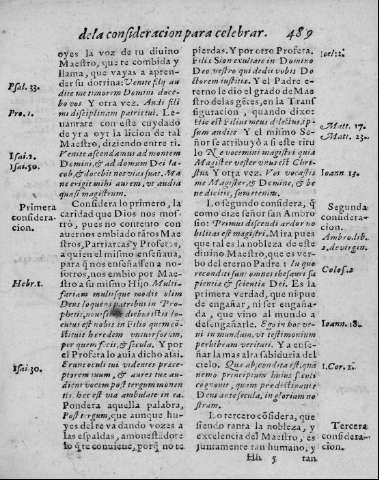 de la consideracion para celebrar. 489
oyes la voz de tu diuino
Maestro, que te combida y
llama, que vayas a apren-
der su dotrina: Venite filij au-
dite me timorem Domini doce-
bo vos. Y otra vez. Audi fili
mi disciplinam patris tui. Le-
uantare con este cuydado
de yr a oyr la licion de tal
Maestro, diziendo entre ti.
Venite ascendamus ad montem
Domini, & ad domum Dei Ia-
cob, & docebit nos vias suas. Ma
ne erigit mihi aurem, vt audia
quasi magistrum.
Considera lo primero, la
caridad que Dios nos mos-
tró, pues no contento con
auernos embiado tãtos Maes
tros, Patriarcas y Profetas,
a quien el mismo enseñaua,
para q̃ nos enseñassen a no-
sotros, nos embio por Mae-
stro a su mismo Hijo. Multi-
fariam multisque modis olim
Deus loquens patribus in Pro-
phetis, nouissime diebus istis lo-
cutus est nobis in Filio quem cõ-
stituit heredem vniuersorum,
per quem fecit, & sæcula. Y por
el Profeta lo auia dicho assi.
Erunt oculi tui videntes præce-
ptorem tuum, & aures tuæ au-
dient vocem post tergum monen
tis, hæc est via ambulate in ea.
Pondera aquella palabra,
Post tergum, que aunque hu-
yes del te va dando vozes a
las espaldas, amonestãdote
lo q̃ te conuiene, porq̃ no te
Psal. 33.
Pro. 1.
Isai. 2.
Isai. 50.
Primera
considera-
cion.
Hebr. 1.
Isai. 30.
pierdas. Y por otro Profeta,
Filij Sion exultate in Domino
Deo vestro qui dedit vobis Do-
ctorem iustitiæ. Y el Padre e-
terno le dio el grado de Maes
tro de las gẽtes, en la Trans
figuracion, quando dixo:
Hic est Filius meus dilectus, ip-
sum audite Y el mismo Se-
ñor se atribuyó a si este titu
lo Ne vocemini magistri quia
Magister vester vnus est Chri-
stus Y otra vez. Vos vocastis
me Magister, & Domine, & be
ne dicitis, sum etenim.
Lo segundo considera, q̃
como dize señor san Ambro
sio: Primus discendi ardor no-
bilitas est magistri. Mira pues
que tal es la nobleza de este
diuino Maestro, que es ver-
bo del eterno Padre: In quo
reconditi sunt omnes thesauri sa
pientiæ & scientiæ Dei. Es la
primera verdad, que ni pue
de engañar, ni ser engaña-
da, que vino al mundo a
desengañarle. Ego in hoc ve-
ni in mundum, vt testimonium
perhibeam veritati. Y a ense-
ñar la mas alta sabiduria del
cielo. Quæ abscondita est, quã
nemo principum huius sæculi
cognouit, quam prædestinauit
Deus ante sæcula, in gloriam no
stram.
Lo tercero cõsidera, que
siendo tanta la nobleza, y
excelencia del Maestro, es
juntamente tan humano, y
Hh 5 tan
Ioel. 2.
Matt. 17.
Matt. 23.
Ioann 13.
Segunda
considera-
cion.
Ambro. lib.
2. de virgin.
Colos. 2
Ioann. 18.
1. Cor. 2.
Tercera
considera-
cion.